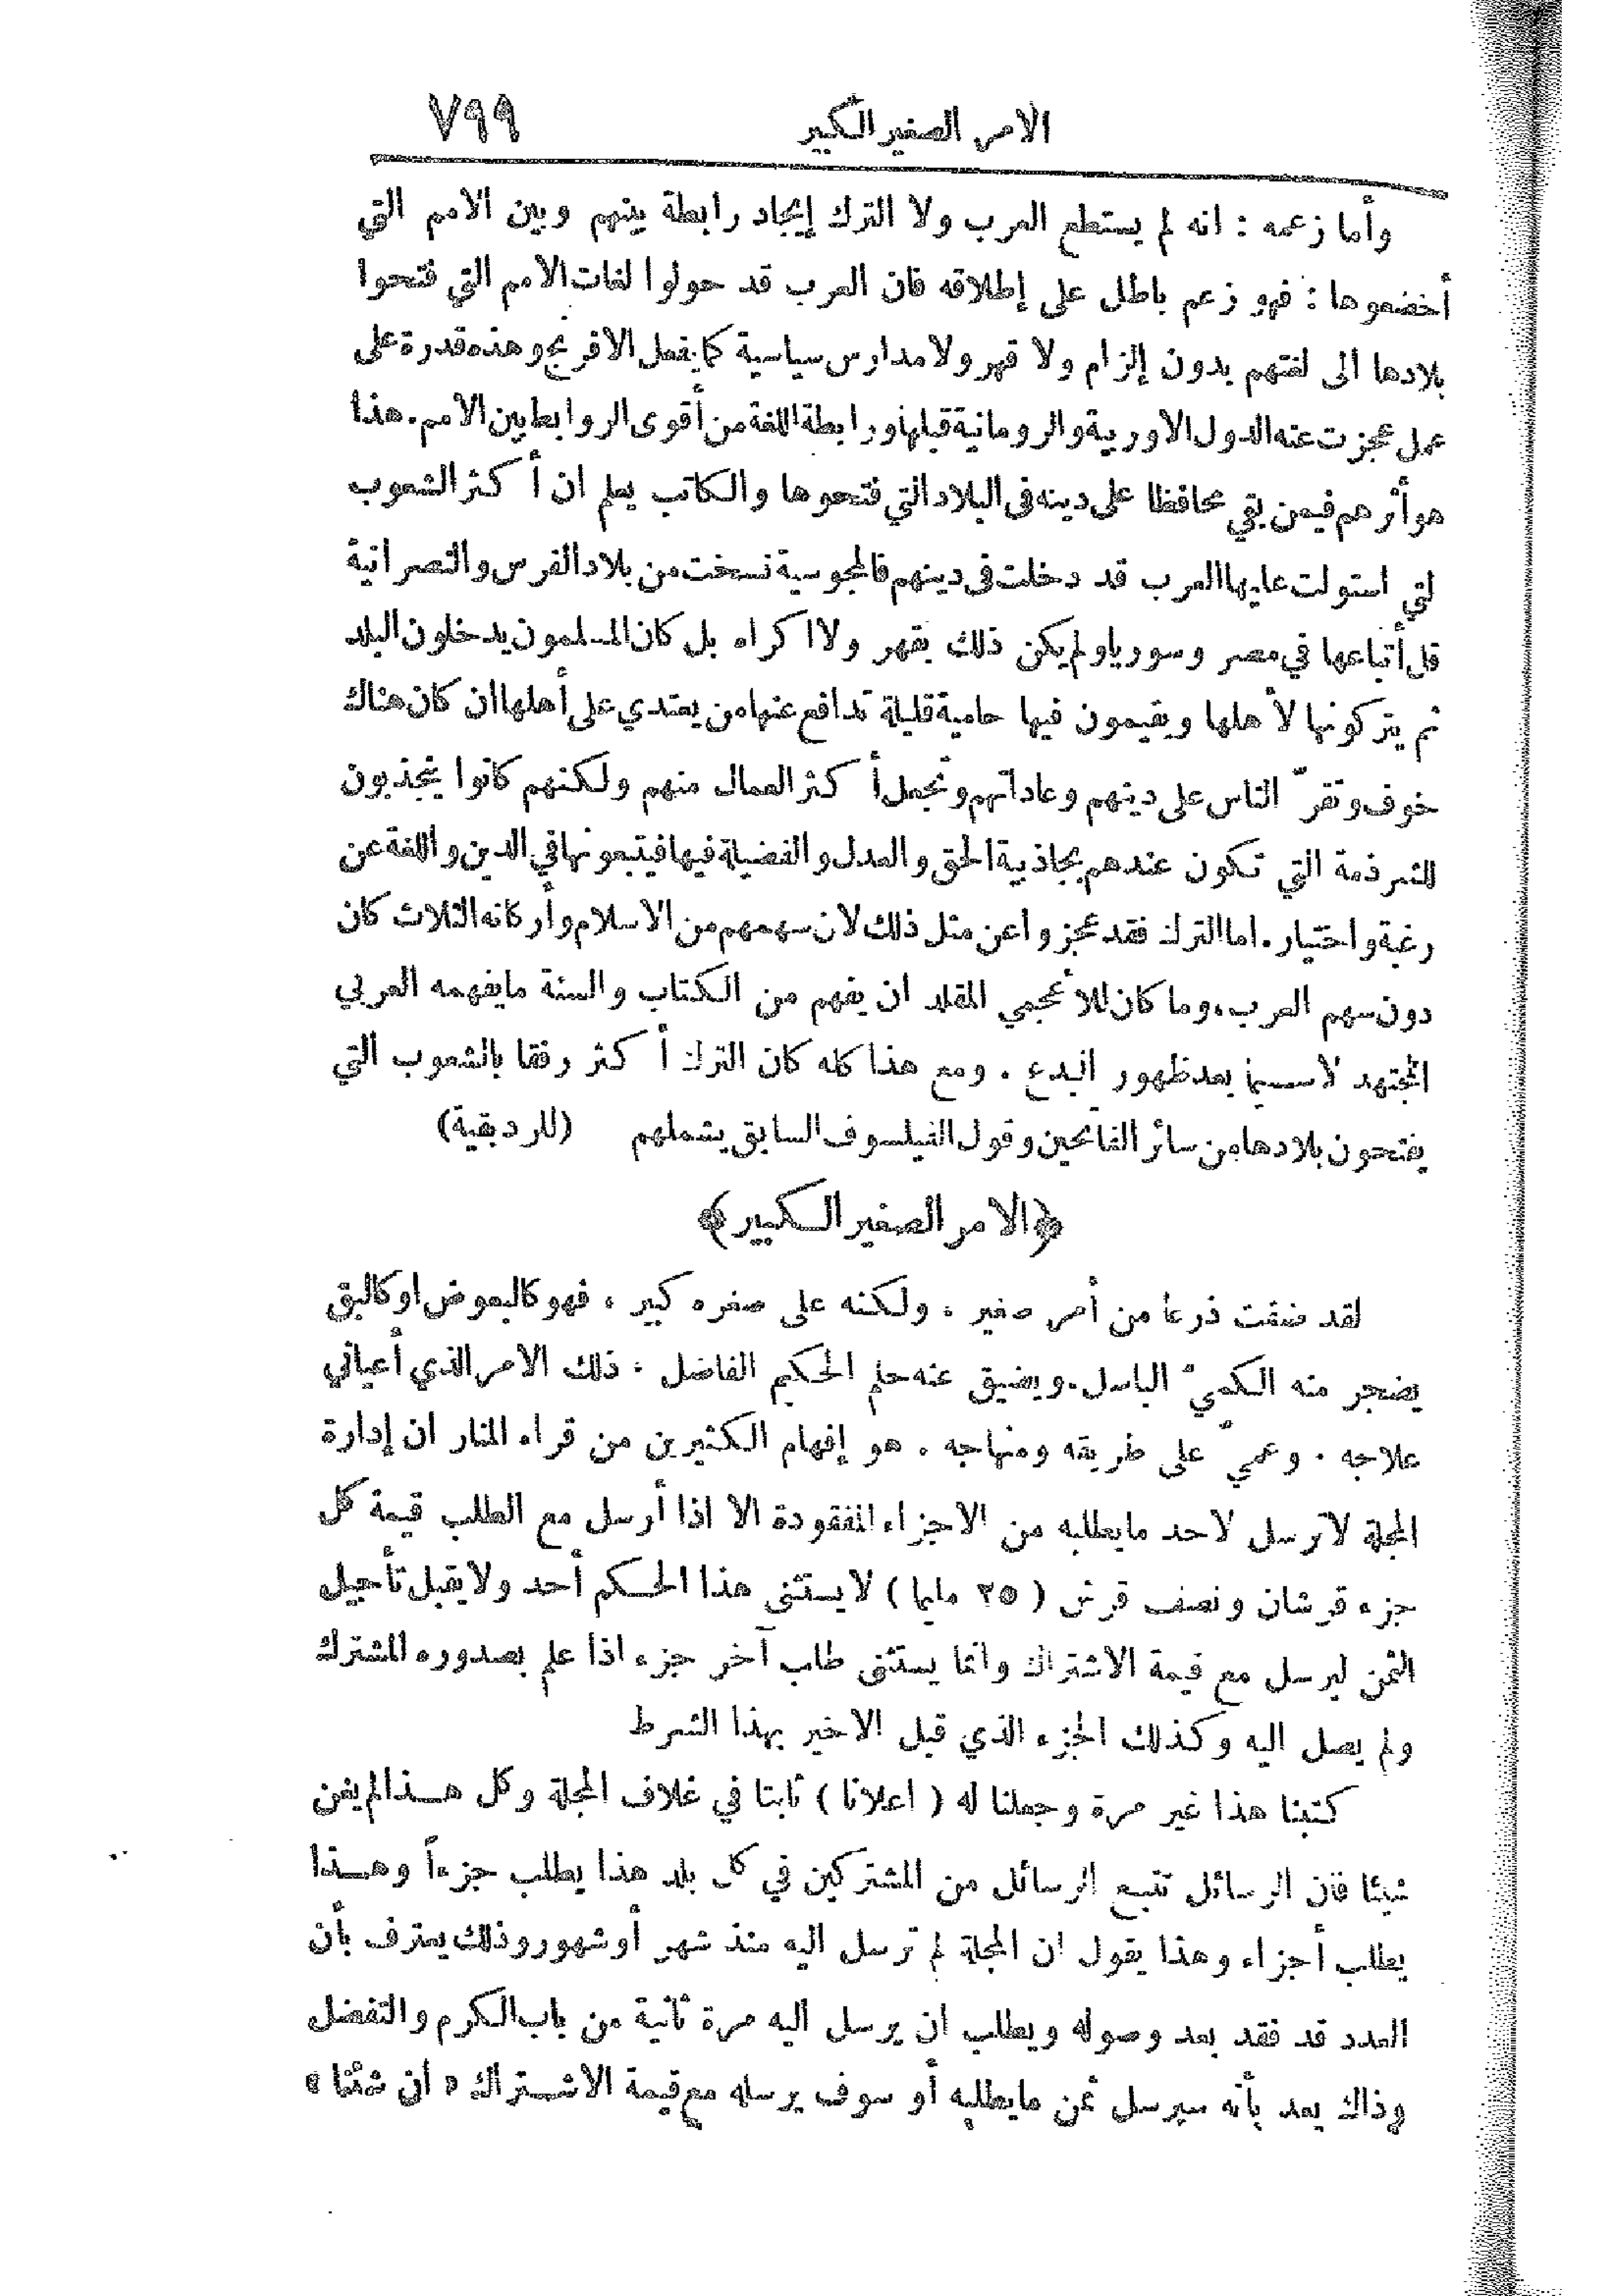 الامر الصغير الكبير ٧٩٩
وأما زعمه : انه لم يستطع العرب ولا الترك إيجاد رابطة بينهم وبين الامم التي
أخضعوها : فهو زعم باطل على إطلاقه فان العرب قد حولوا لغات الامم التي فتحوا
بلادها الى لغتهم بدون إلزام ولا قهر ولا مدارس سياسية كما يفعل الافرنج وهذه قدرة على
عمل عجزت عنه الدول الاوربية والرومانية قبلها ورابطة اللغة من أقوى الروابط بين الامم. هذا
هو أثرهم فيمن بقي محافظا على دينه في البلاد التي فتحوها والكاتب يعلم ان أكثر الشعوب
لتي استولت عليها العرب قد دخلت في دينهم فالمجوسية نسخت من بلاد الفرس والنصرانية
قل أتباعها في مصر وسوريا ولم يكن ذلك بقهر ولا اكراه بل كان المسلمون يدخلون البلد
ثم يتركونها لأهلها ويقيمون فيها حامية قليلة تدافع عنها من يعتدي على أهلها ان كان هناك
خوف وتقرّ الناس على دينهم وعاداتهم وتجعل أكثر العمال منهم ولكنهم كانوا ينجذبون
للشرذمة التي تكون عندهم بجاذبية الحق والعدل والفضيلة فيها فيتبعونها في الدين واللغة عن
رغبة واختيار. اما الترك فقد عجزوا عن مثل ذلك لان سهمهم من الاسلام وأركانه الثلاث كان
دون سهم العرب، وما كان للاعجمي المقلد ان يفهم من الكتاب والسنة مايفهمه العربي
المجتهد لاسيما بعد ظهور البدع . ومع هذا كله كان الترك أكثر رفقا بالشعوب التي
يفتحون بلادها من سائر الفاتحين وقول الفيلسوف السابق يشملهم (للرد بقية)
﴿ الامر الصغير الكبير ﴾
لقد ضقت ذرعا من أمر صغير ، ولكنه على صغره كبير ، فهو كالبعوض او كالبق
يضجر منه الكميّ الباسل. ويضيق عنه حلم الحكيم الفاضل ، ذلك الامر الذي أعياني
علاجه . وعميّ على طريقه ومنهاجه . هو إفهام الكثيرين من قراء المنار ان إدارة
المجلة لاترسل لاحد مايطلبه من الاجزاء المفقودة الا اذا أرسل مع الطلب قيمة كل
جزء قرشان ونصف قرش ( ٢٥ مليما ) لا يستثنى هذا الحكم أحد ولا يقبل تأجيل
الثمن ليرسل مع قيمة الاشتراك وانما يستثنى طلب آخر جزء اذا علم بصدوره المشترك
ولم يصل اليه وكذلك الجزء الذي قبل الاخير بهذا الشرط
كتبنا هذا غير مرة وجعلنا له ( اعلانا ) ثابتا في غلاف المجلة وكل هـذا لم يغن
شيئا فان الرسائل تتبع الرسائل من المشتركين في كل بلد هذا يطلب جزءاً وهـذا
يطلب أجزاء وهذا يقول ان المجلة لم ترسل اليه منذ شهر أو شهور وذلك يعترف بأن
العدد قد فقد بعد وصوله ويطلب ان يرسل اليه مرة ثانية من باب الكرم والتفضل
وذاك يعد بأنه سيرسل ثمن مايطلبه أو سوف يرسله مع قيمة الاشـتراك « ان شئنا »